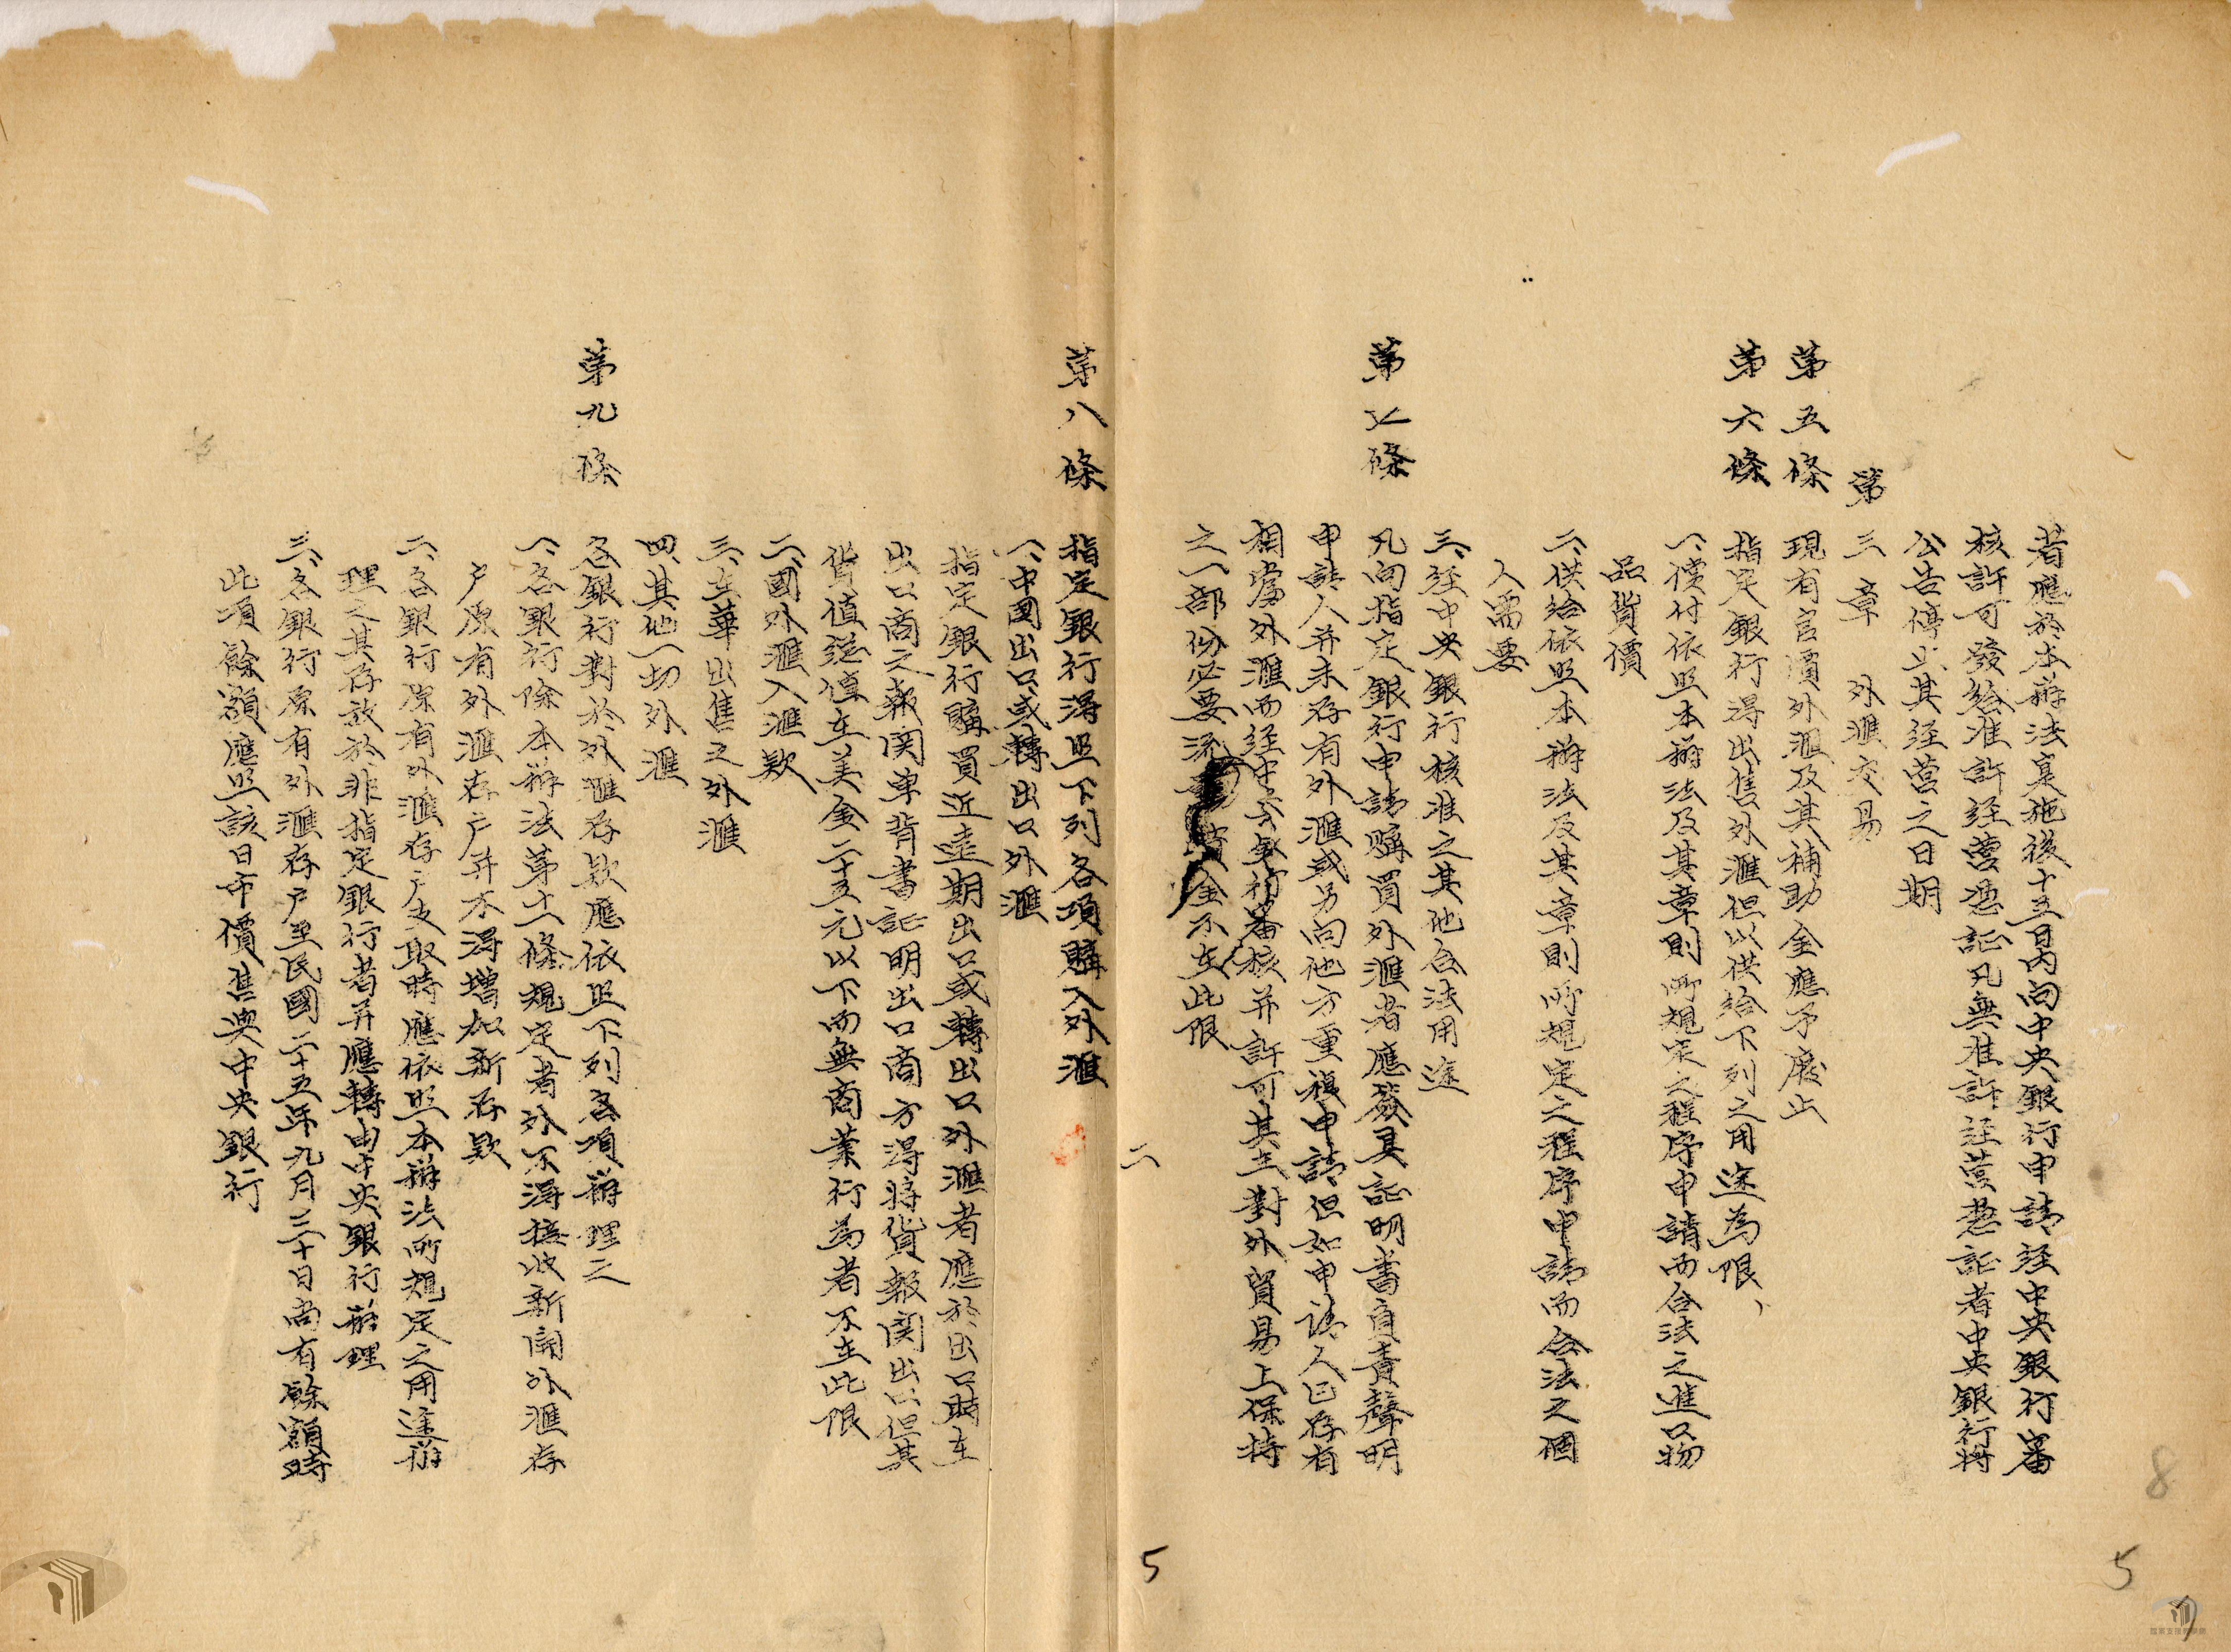 者應於本辦法實施後十五日內向中央銀行申請经中央銀行審
核許可發給准許经營憑証凡無准許经營憑証者中央銀行將
公告停止其经营之日期
第三章 外滙交易
第五條 現有官價外滙及其補助金應予廢止
第六條 指定銀行得出售外滙但以供給下列之用途為限、
一、償付依照本辦法及其章則所規定之程序申請而合法之進口物
品貨價
二、供給依照本辦法及其章則所規定之程序申請而合法之個
人需要
三、经中央銀行核准之其他合法用途
第七條 凡向指定銀行申請購買外滙者應簽具証明書負責聲明
申請人并未存有外滙或另向他方重複申請但如申請人已存有
相當外滙而经中央銀行審核并許可其在對外貿易上保持
之一部份必要流資金不在此限
二
5
第八條 指定銀行得照下列各項購入外滙
一、中國出口或轉出口外滙
指定銀行購買近遠期出口或轉出口外滙者應於出口時在
出口商之報関单背書証明出口商方得將貨報関出口但其
貨值總值在美金二十五元以下而無商業行為者不在此限
二、國外滙入滙欵
三、在華出售之外滙
四、其他一切外滙
第九條 各銀行對於外滙存欵應依照下列各項辦理之
一、各銀行除本辦法第十一條規定者外不得接收新開外滙存
户原有外滙存户并不得增加新存欵
二、各銀行原有外滙存户支取時應依照本辦法所規定之用途辦
理之其存放於非指定銀行者并應轉由中央銀行辦理
三、各銀行原有外滙存户至民國二十五年九月三十日尚有餘額時
此項餘額應照該日市價售與中央銀行
8
5